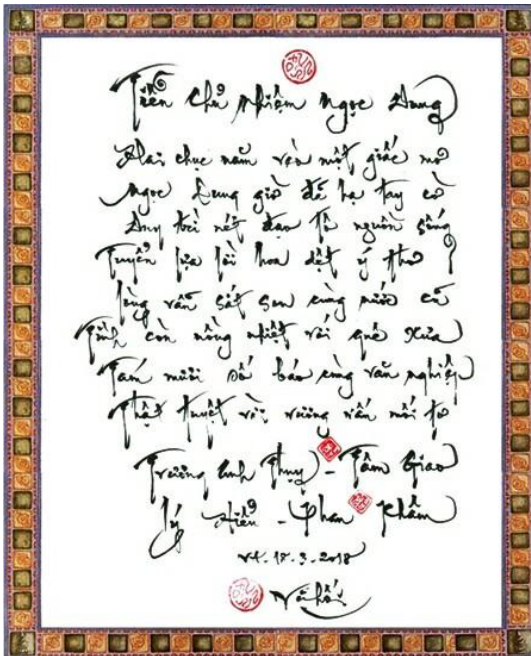 Tiễn Chủ Nhiệm Ngọc Dung
Hai chục năm vèo một giấc mơ
Ngọc Dung giờ đã hạ tay cờ
Duy trì nét đạo từ nguồn sống
Tuyển lựa lời hoa dệt ý thơ
Lòng vẫn sắt son cùng nước cũ
Tình còn nồng nhiệt với quê xưa
Tám mươi số báo cùng văn nghiệp
Thật tuyệt vời vương vấn mối tơ
Trương Anh Thụy - Tâm Giao
Lý Hiểu - Phan Khâm
VA. 18.3.2018